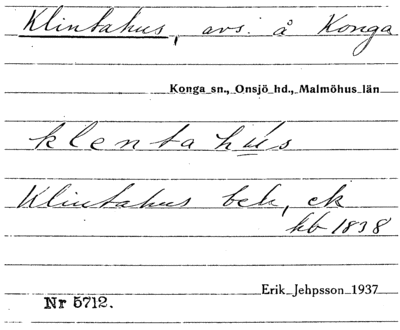 Klintahus, avs. å Konga
Konga sn., Onsjö hd., Malmöhus län
klenta hús
Klintahus beb, ek
hb 1838
Erik Jehpsson 1937
Nr 5712.